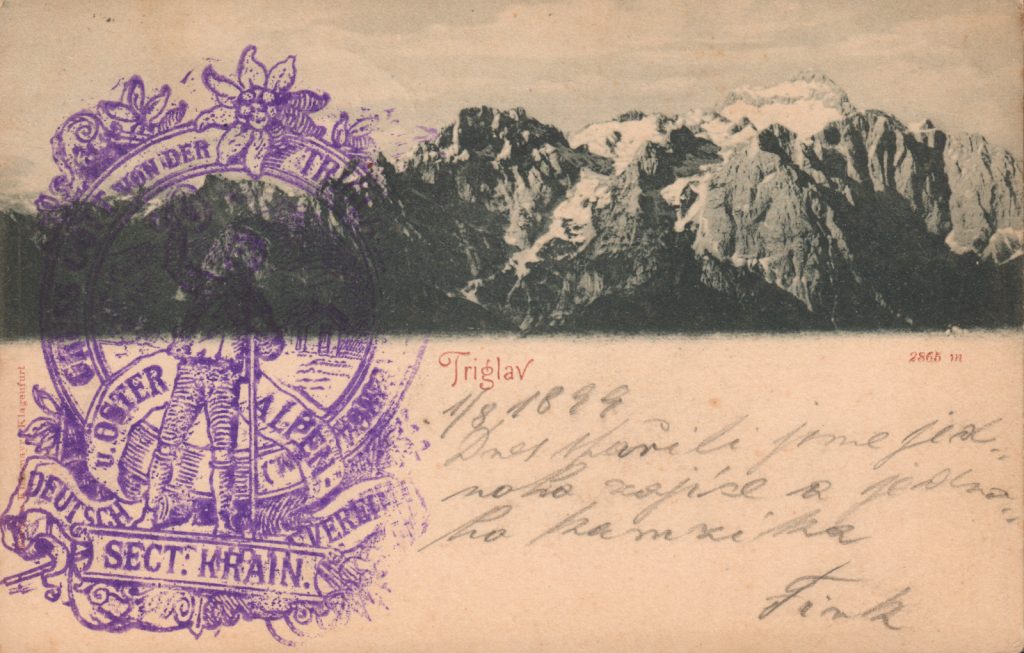 VON DER
U. OSTER ALPEN
DEUTSCH VEREIN
SECT: KRAIN.
Klagenfurt
Triglav
2865 m
1/8 1899
Dnes jsme jed-
noho zajíce a jedno-
ho kamzíka
Fink